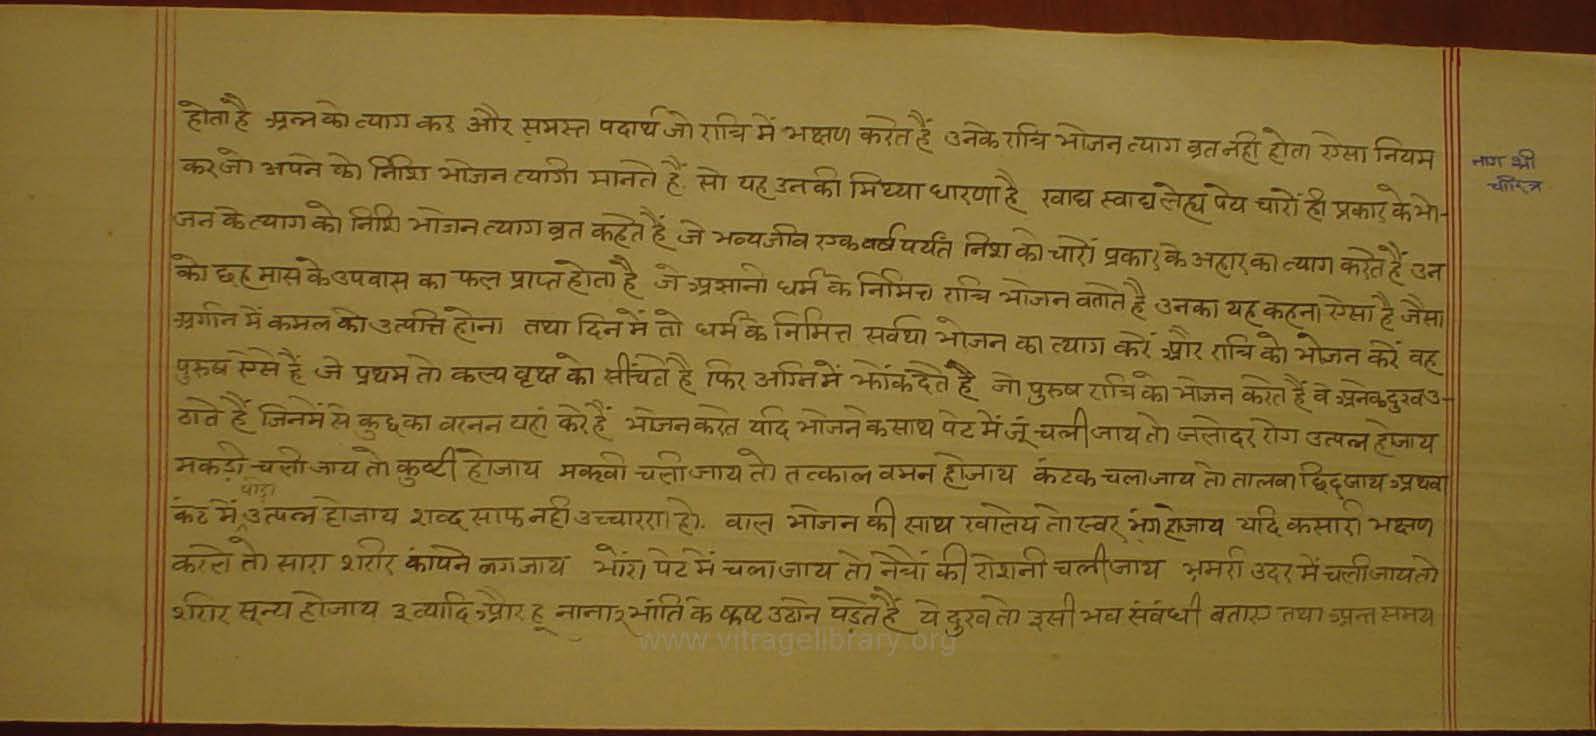 होता है अन्न को त्याग कर और समस्त पदार्थ जो रात्रि में भक्षण करते हैं उनके रात्रि भोजन त्याग व्रत नही होता ऐसा नियम
कर जो अपने को निशि भोजन त्यागी मानते हैं. सो यह उनकी मिथ्या धारणा है खाद्य स्वाद्य लेह्य पेय चारों ही प्रकार के भो-
जन के त्याग को निशि भोजन त्याग व्रत कहते हैं जे भव्यजीव एक वर्ष पर्यंत निश को चारों प्रकार के अहार का त्याग करते हैं उन
को छह मास के उपवास का फल प्राप्त होता है जे अज्ञानी धर्म के निमित्त रात्रि भोजन वताते है उनका यह कहना ऐसा है जैसा
अग्नि में कमल की उत्पत्ति होना तथा दिन में तो धर्म के निमित्त सर्वथा भोजन का त्याग करें और रात्रि को भोजन करें वह
पुरुष ऐसे हैं जे प्रथम तो कल्प वृक्ष को सींचते है फिर अग्नि में झोंक देते है जो पुरुष रात्रि को भोजन करते हैं वे अनेक दुख उ-
ठाते हैं जिनमें से कुछ का वरनन यहां करे हैं भोजन करते यदि भोजन के साथ पेट में जूं चली जाय तो जलोदर रोग उत्पन्न होजाय
मकड़ी चली जाय तो कुष्टी होजाय मक्खी चली जाय तो तत्काल वमन होजाय कंटक चला जाय तो तालवा छिद जाय अथवा
कंठ में पीड़ा उत्पन्न होजाय शव्द साफ नही उच्चारण हो. वाल भोजन की साथ खालेय तो स्वर भंग होजाय यदि कसारी भक्षण
करले तो सारा शरीर कांपने लग जाय भोंरा पेट में चला जाय तो नेत्रों की रोशनी चली जाय भ्रमरी उदर में चली जाय तो
शरीर सून्य होजाय इत्यादि और हू नाना भांति के कष्ट उठाने पड़ते हैं ये दुख तो इसी भव संबंधी बताए तथा अन्त समय
नाग श्री
चरित्र
www.vitragelibrary.org